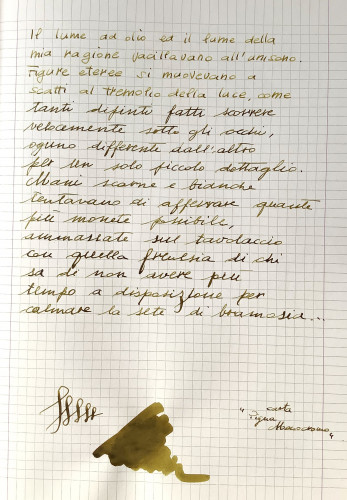 Il lume ad olio ed il lume della
mia ragione vacillavano all'unisono.
Figure eteree si muovevano a
scatti al tremolio della luce, come
tanti dipinti fatti scorrere
velocemente sotto gli occhi,
ognuno differente dall'altro
per un solo piccolo dettaglio.
Mani scarne e bianche
tentavano di afferrare quante
più monete possibile,
ammassate sul tavolaccio
con quella frenesia di chi
sa di non avere più
tempo a disposizione per
calmare la sete di bramosia...
" carta
Pigna
"